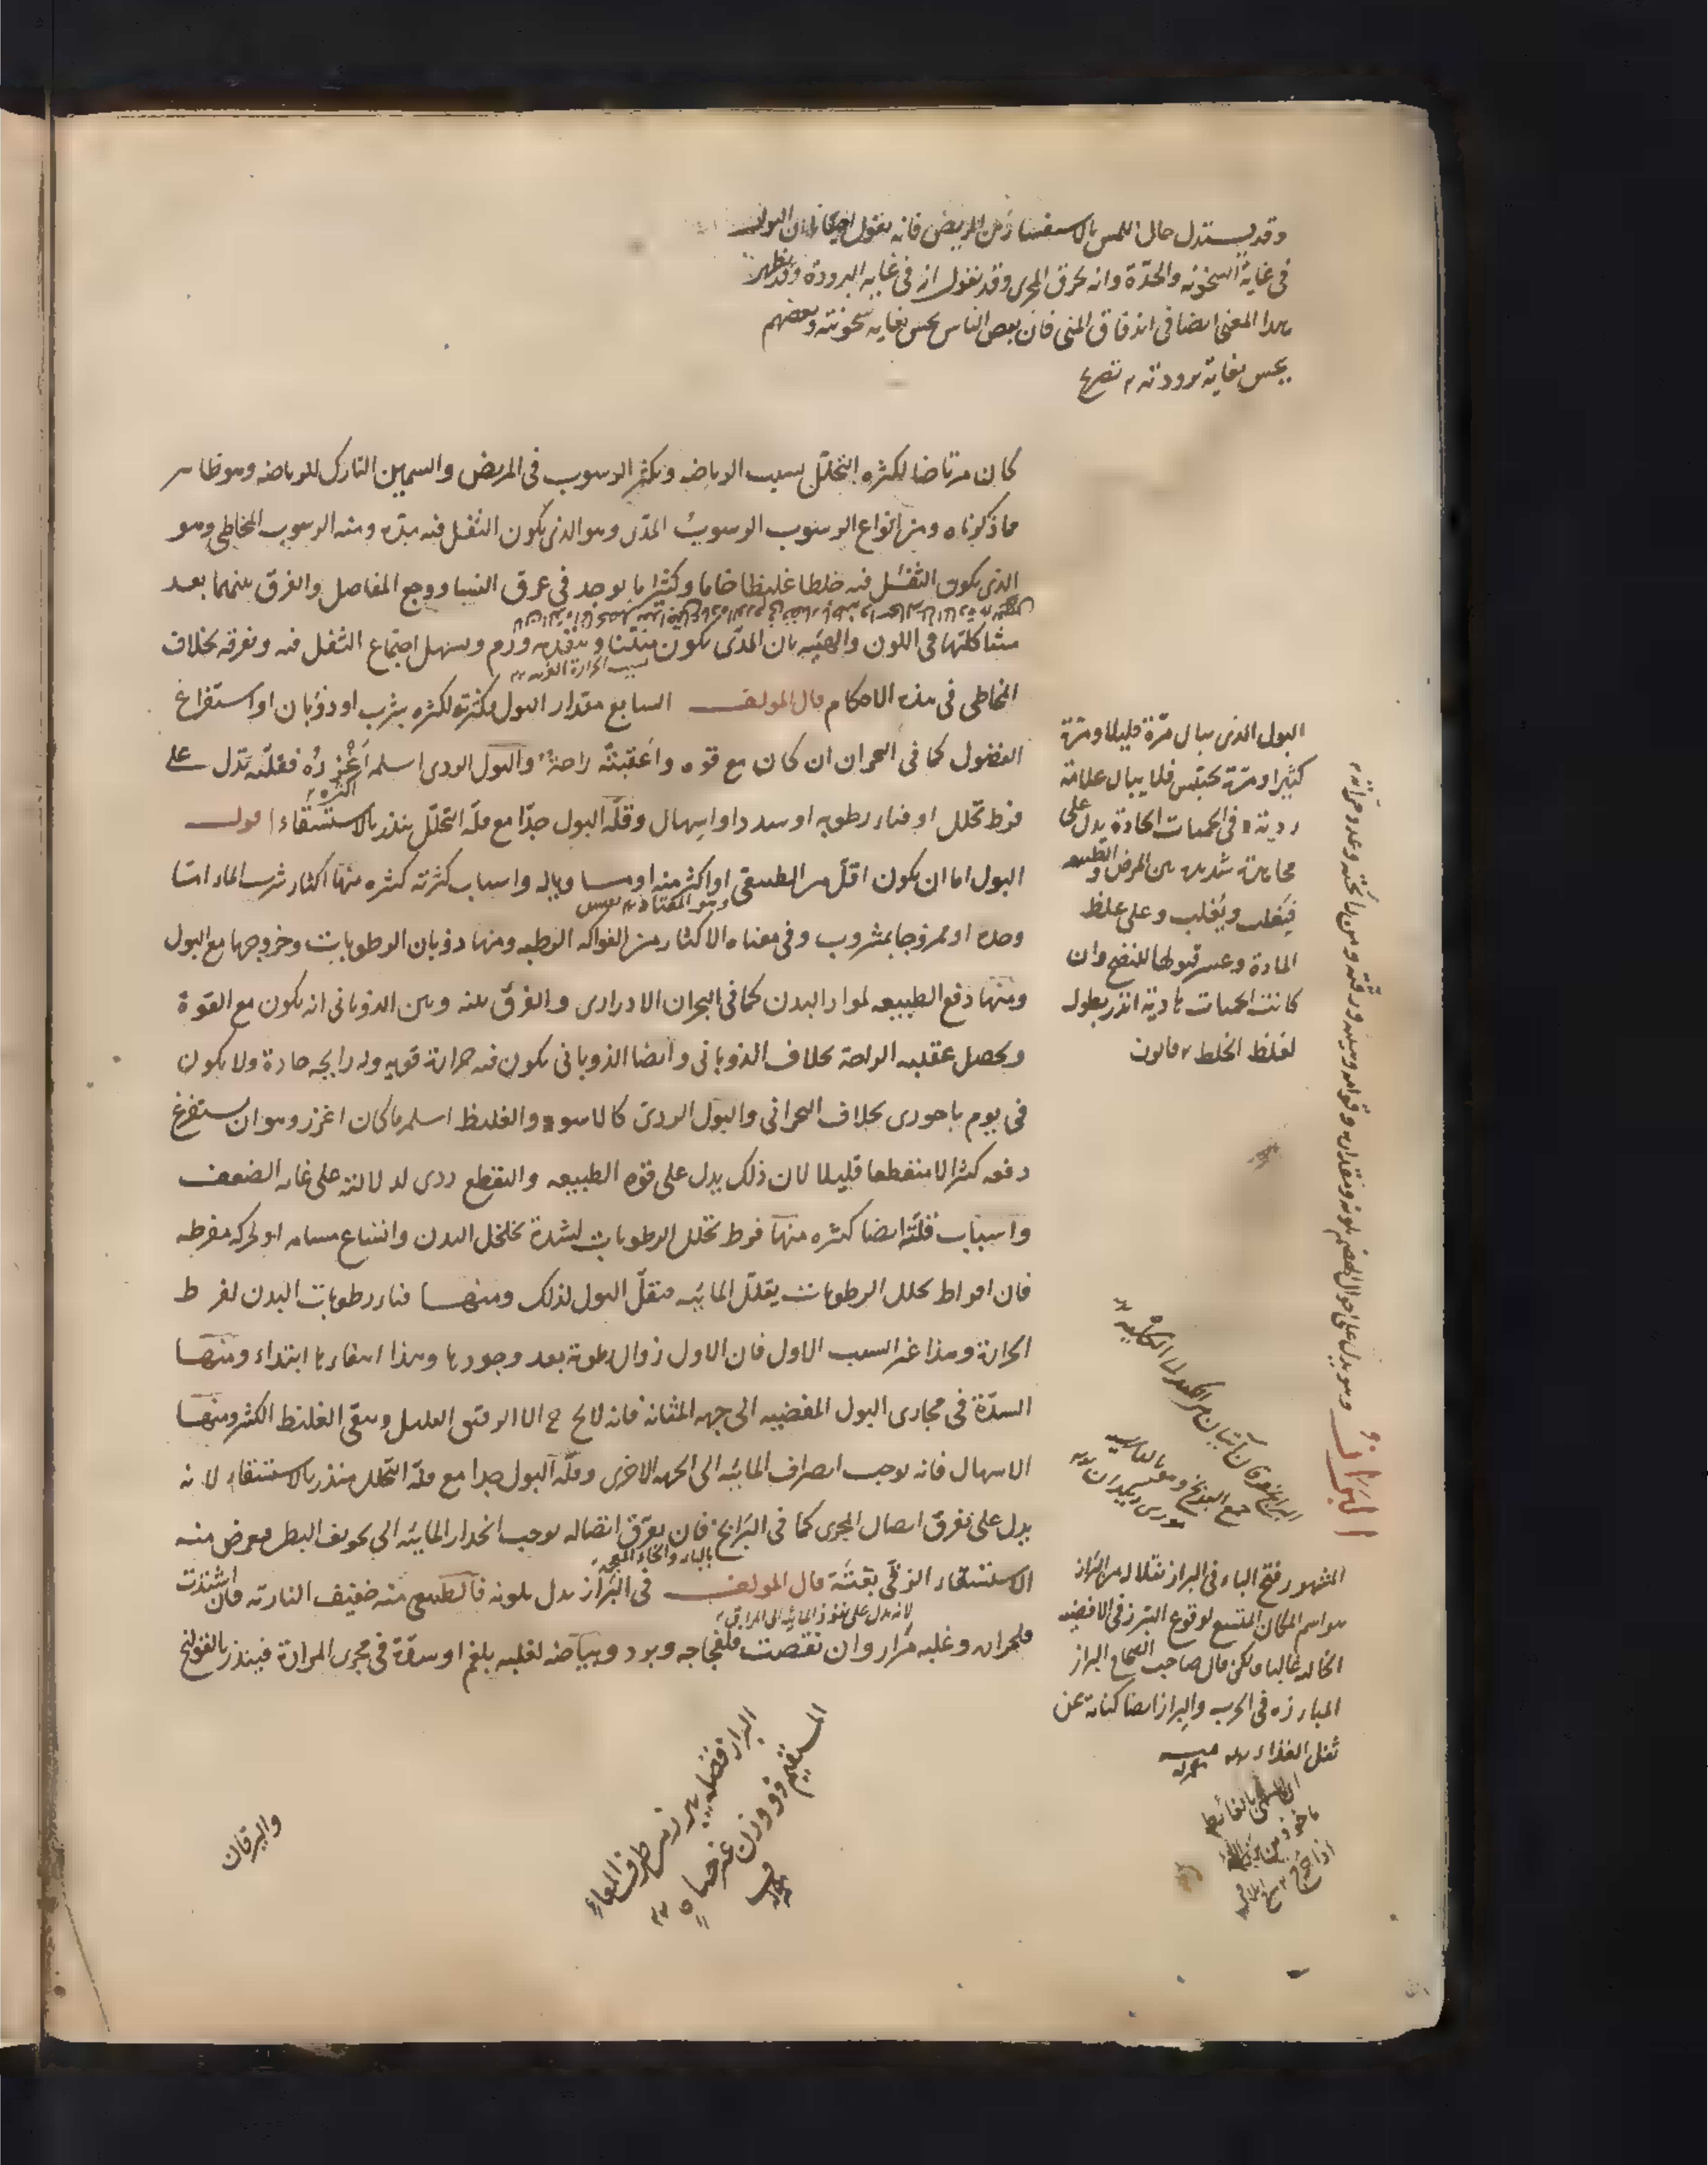 وقد يستدل حال اللمس بالاستفسار من المريض فانه يقول احيانا ان البول
فى غاية السخونة والحدّة وانه يحرق المجرى وقد يقول انه فى غاية البرودة وقد يظهر
هذا المعنى ايضا فى اندفاق المنى فان بعض الناس يحس بغاية سخونته وبعضهم
يحس بغاية برودته
كان مرتاضا لكثرة التحلّل بسبب الرياضه ويكثر الرسوب فى المريض والسمين التارك للرياضه وهو ظاهر
مما ذكرناه ومن انواع الرسوب الرسوب المدّى وهو الذى يكون الثفل فيه مِدّه ومنه الرسوب المخاطى وهو
الذى يكون الثفل فيه خلطا غليظا خاما وكثيرا ما يوجد فى عرق النسا ووجع المفاصل والفرق بينهما بعد
مشاكلتهما فى اللون والهيئه بان المدّى يكون منتنا ويتقدمه ورم ويسهل اجتماع الثفل فيه وتفرقه بخلاف
بسبب الحرارة الغريبه
المخاطى فى هذه الاحكام قال المولف السابع مقدار البول فكثرته لكثره شرب او ذوبان او استفراغ
الفضول كما فى البحران ان كان مع قوه واعقبته راحةٌ والبول الردى اسلمه اغزرُهُ فقلّته تدل على
اكثره
فرط تحلل او فناء رطوبه او سدد او اسهال وقلّة البول جدّا مع قلّة التحلّل ينذر بالاستسقاء اقول
البول اما ان يكون اقلّ من الطبيعى او اكثر منه او مساويا له واسباب كثرته كثيره منها اكثار شرب الماء امّا
وهو المعتاد
وحده او ممزوجا بمشروب وفى معناه الاكثار من الفواكه الرطبه ومنها ذوبان الرطوبات وخروجها مع البول
ومنها دفع الطبيعه لمواد البدن كما فى البحران الادرارى والفرق بينه وبين الذوبانى انه يكون مع القوة
ويحصل عقيبه الراحة بخلاف الذوبانى وايضا الذوبانى يكون فيه حرارة قويه وله رايحه حادة ولا يكون
فى يوم باحورى بخلاف البحرانى والبول الردى كالاسود والغليظ اسلمه ما كان اغزر وهو ان يستفرغ
دفعه كثيرا لا منقطعا قليلا لان ذلك يدل على قوة الطبيعه والتقطع ردى لدلالته على غايه الضعف
واسباب قلّته ايضا كثيره منها فرط تحلل الرطوبات لشدة تخلخل البدن واتساع مسامه او لحركه مفرطه
فان افراط تحلل الرطوبات يقلّل المائيه فيقلّ البول لذلك ومنها فناء رطوبات البدن لفرط
الحرارة وهذا غير السبب الاول فان الاول زوال رطوبة بعد وجودها وهذا انتفاءها ابتداء ومنها
السدّة فى مجارى البول المفضيه الى جهه المثانة فانه لا يخرج ح الا الرقيق القليل ويبقى الغليظ الكثير ومنها
الاسهال فانه يوجب انصراف المائيه الى الجهه الاخرى وقلّة البول جدا مع قلة التحلل منذر بالاستسقاء لانه
يدل على تفرق اتصال المجرى كما فى البرابخ فان تفرّق اتصاله يوجب انحدار المائيه الى تجويف البطن فيعرض منه
بالباء والخاء المعجمه
الاستسقاء الزقّى بغتةً قال المولف فى البَرَاز يدل بلونه فالطبيعى منه خفيف الناريه فان اشتدت
لانه يدل على نفوذ المائيه الى المراق
فلحراره وغلبه مرار وان نقصت فلفجاجه وبرد وبياضه لغلبه بلغم او سدّة فى مجرى المرارة فينذر بالقولنج
واليرقان
البول الذى يبال مرّة قليلا ومرّة
كثيرا ومرّة يحتبس فلا يبال علامة
رديئة فى الحميات الحادة يدل على
مجاهدة شديده بين المرض والطبيعه
فيَغلب ويُغلب وعلى غلظ
المادة وعسر قبولها للنضج وان
كانت الحميات هادية انذر بطول
لغلظ الخلط قانون
البراز
وهو يدل على احوال الهضم بلونه ومقداره وقوامه ولينه ورقته ومن رائحته وعدد مراته
المشهور فتح الباء فى البراز نقلا له من البَراز
هو اسم المكان المتسع لوقوع التبرز فى الافضيه
الخاليه غالبا ولكن قال صاحب الصحاح البراز
المبارزه فى الحرب والبِراز ايضا كناية عن
ثفل الغذاء
البراز فضله يبرز من طرف المعاء
المستقيم ذو وزن